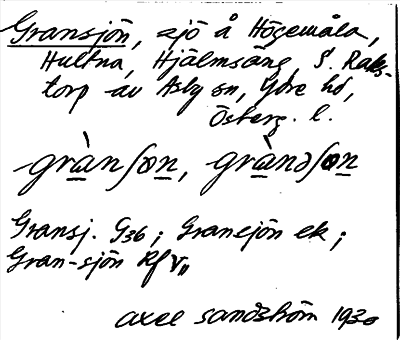 Gransjön, sjö å Högemåla,
Hultna, Hjälmsäng, S. Raks-
torp av Asby sn, Ydre hd,
Österg. l.
grànʃơn, gràndʃơn
Gransj. G36; Gransjön ek;
Gran-sjön Rf V11
Axel Sandström 1930